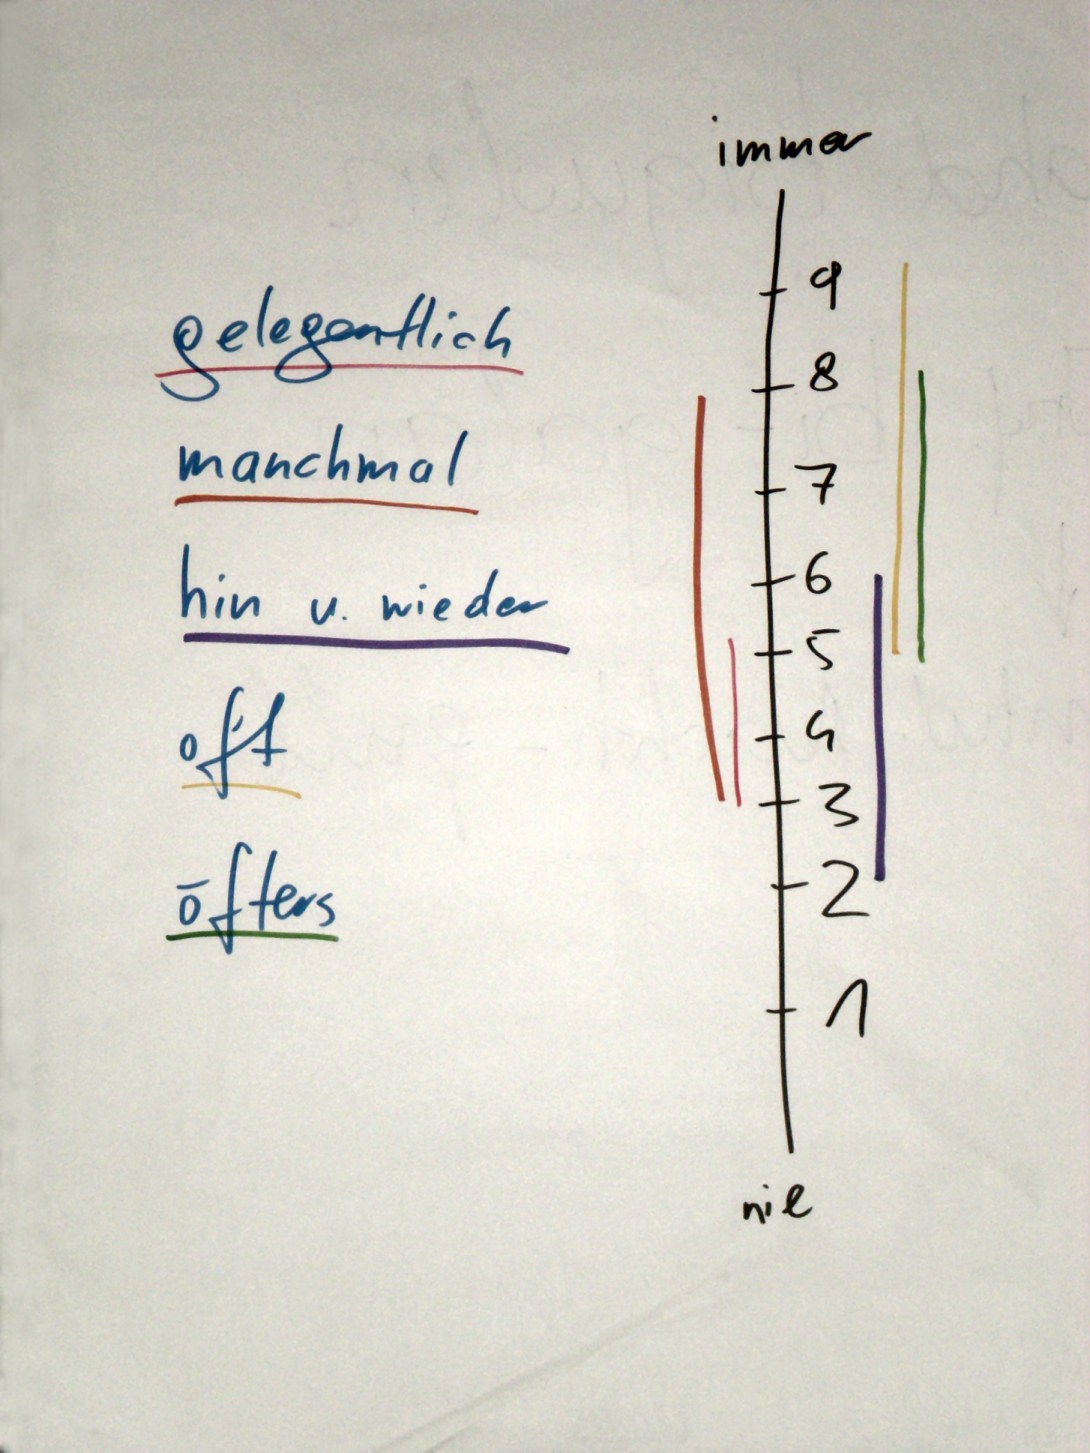 immer
9
gelegentlich
8
manchmal
7
hin u. wieder
6
5
oft
4
3
öfters
2
1
nie